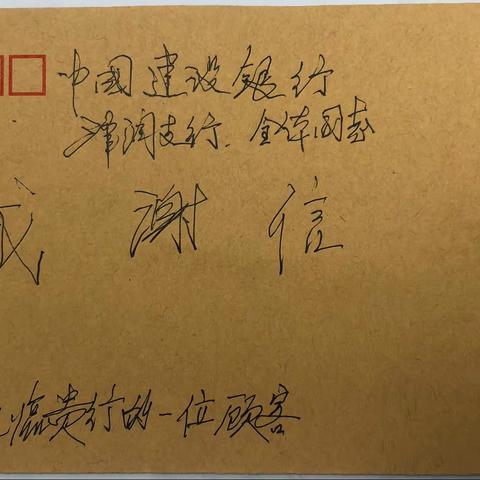 中国建设银行
津润支行.全体同志
感谢信
临贵行的一位顾客